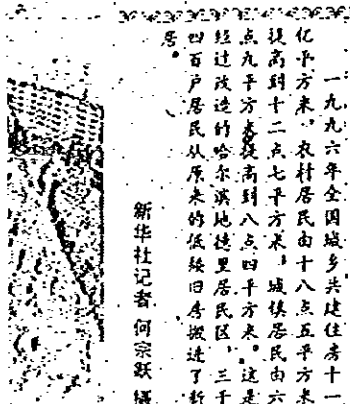 一九九六年全国城乡共建住房十一
亿平方米，农村居民由十八点五平方米
提高到十二点七平方米，城镇居民由六
点九平方米提高到八点四平方米。这是
经过改造的哈尔滨地德里居民区，三千
四百户居民从原来的低矮旧房搬进了新
居。
新华社记者 何宗跃 摄